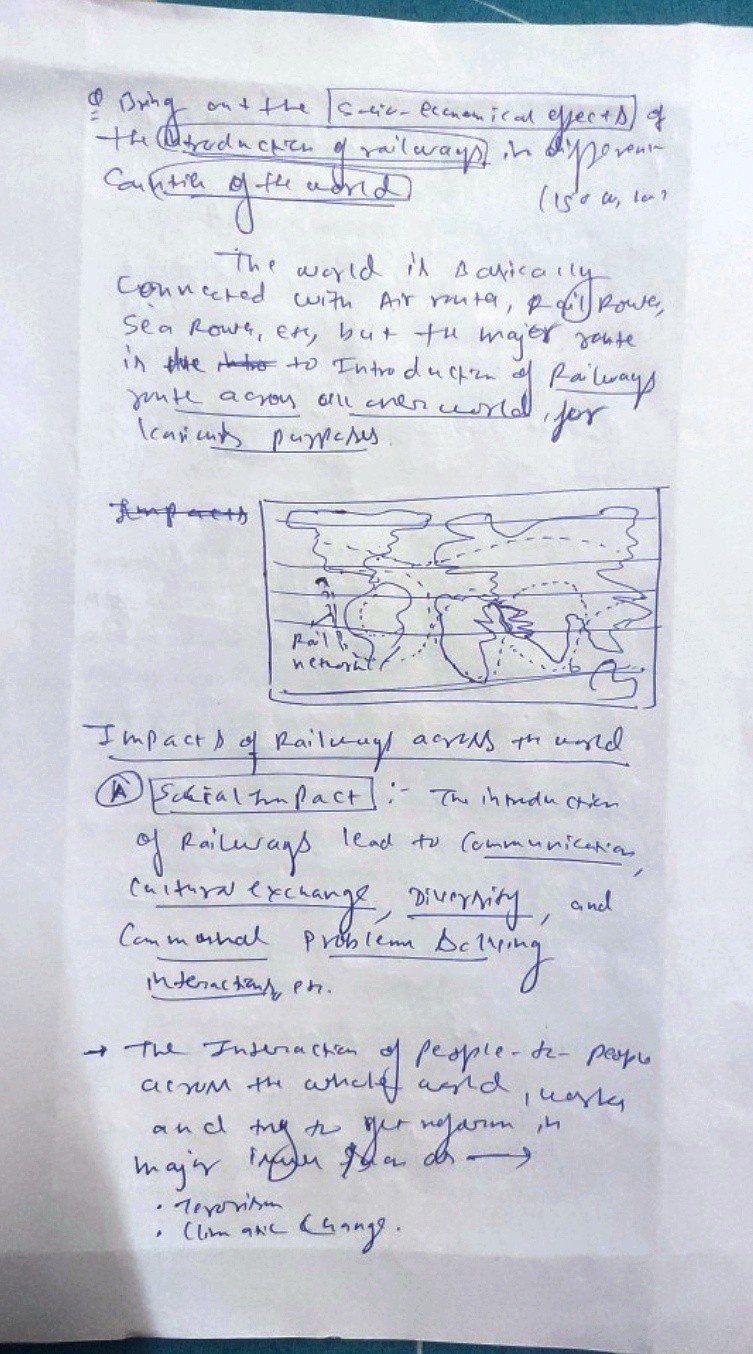 Q Bring out the socio-economical effects of
the Introduction of railways in different
Countries of the world
(150 w, 10)
The world is Basically
Connected with Air route, Rail Route,
Sea Route, etc, but the major route
is the to Introduction of Railways
route across all over world, for
purposes.
Impacts
Rail
network
Impacts of Railways across the world
(A) Social Impact :- The introduction
of Railways lead to Communication,
Cultural exchange, Diversity, and
Communal problem solving
interactions, etc.
→ The Interaction of people-to-people
across the whole world,
and try to get reform in
major issues such as →
• Terorism
• Climatic Change.